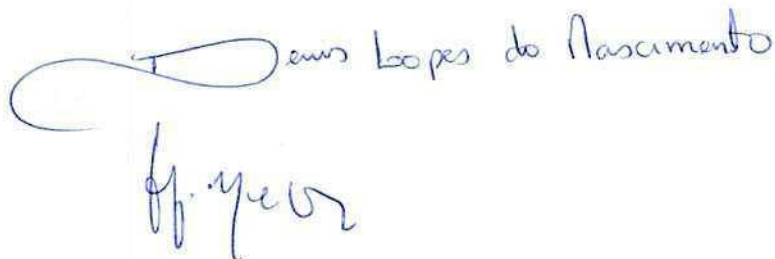 Denis Lopes do Nascimento